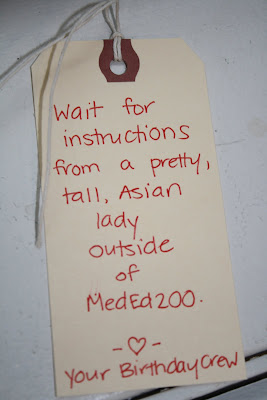 Wait for
instructions
from a pretty,
tall, Asian
lady
outside
of
MedEd200.
-♡-
Your BirthdayCrew